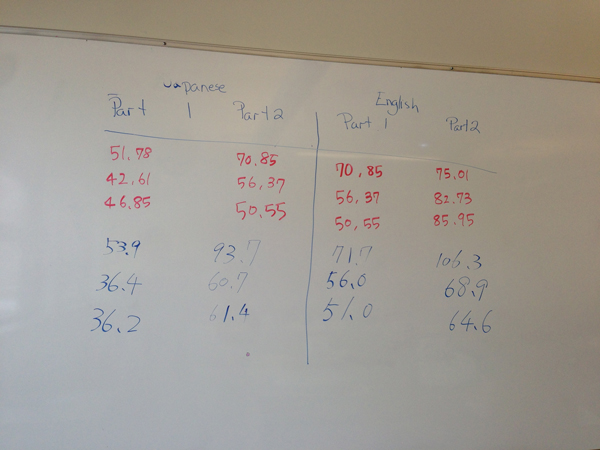 Japanese English
Part 1 Part 2 Part 1 Part 2
51.78 70.85 70,85 75.01
42.61 56,37 56,37 82.73
46.85 50.55 50,55 85.95
53.9 93.7 71.7 106.3
36.4 60.7 56.0 68.9
36.2 61.4 51.0 64.6